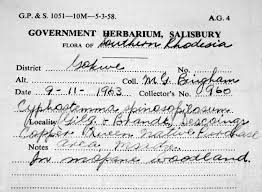 G.P. & S. 1051—10M—5-3-58. A.G. 4
GOVERNMENT HERBARIUM, SALISBURY
FLORA OF Southern Rhodesia
District Gokwe
Alt. Coll. M.G. Bingham
Date 9-11-1963 Collector's No. 960
Cyphostemma spinosopilosum
Locality (Gilg & Brandt) Descoings
Copper Queen Native Purchase
Notes area, Msadzi.
In mopane woodland.